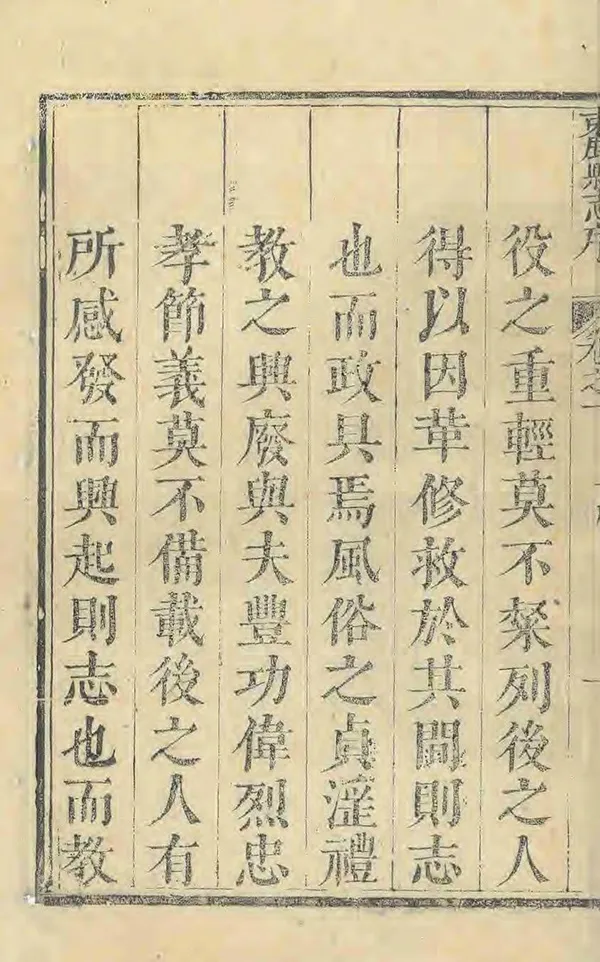 東鹿縣志序 卷之一
役之重輕莫不桀列後之人
得以因革修救於其間則志
也而政具焉風俗之貞滛禮
教之興廢與夫豐功偉烈忠
孝節義莫不備載後之人有
所感發而興起則志也而教